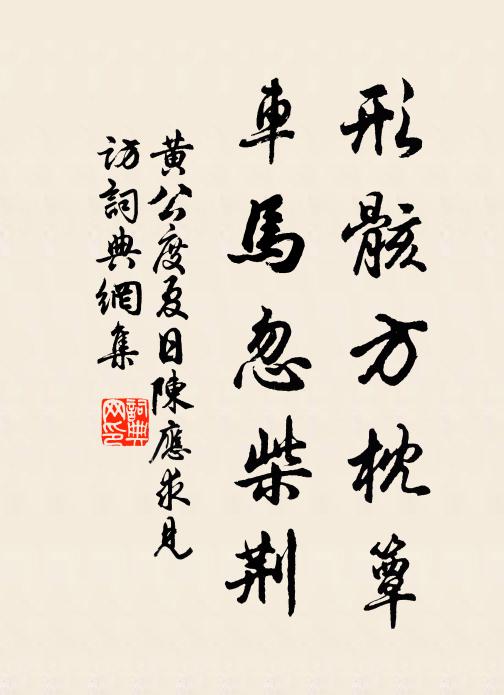 形骸方枕簟
車馬忽柴荆
黄公度夏日陳應求見
訪詞典網集
詞典
网印